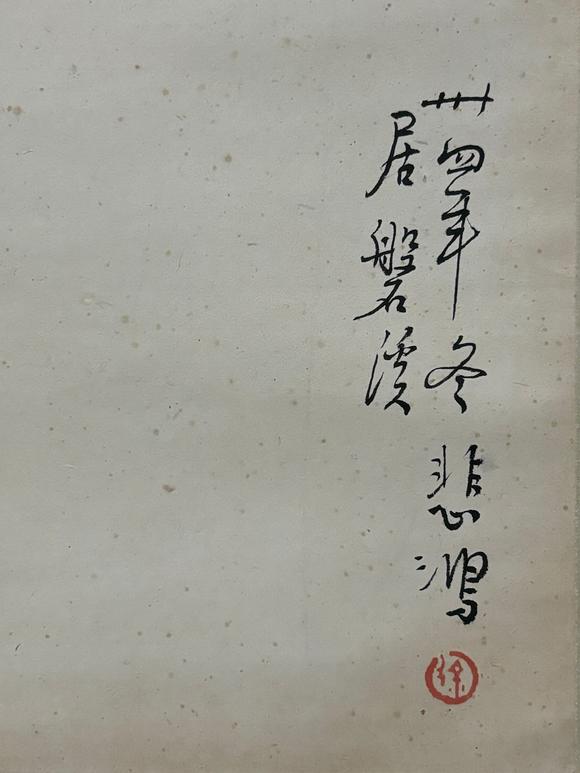 卅四年冬 悲鴻
居磐溪
徐